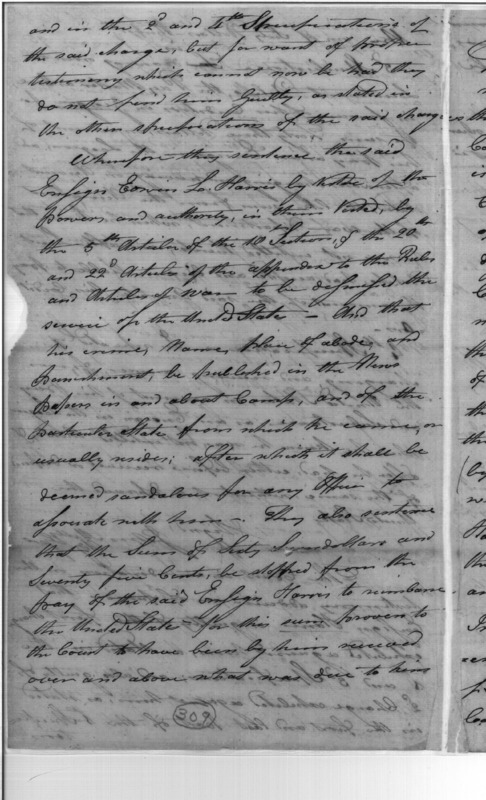 and in the 2d and 4th Specifications of
the said charge; but for want of proper
testimony which cannot now be had they
do not find him Guilty, as stated in
the other specifications of the said charges
Wherefore they sentence the said
Ensign Edward L. Harris by virtue of the
powers and authority, in them Vested, by
the 5th Article of the 18th Section, & the 20th
and 22d Articles of the appendix to the Rules
and Articles of War to be dismissed the
service of the United State — And that
his crime, Name, place of abode, and
Punishment, be published in the News
Papers in and about Camp, and of the
Particular State from which he came, or
usually resides; after which it shall be
deemed scandalous for any Officer to
associate with him —. They also sentence
that the Sum of Sixty dollars and
Seventy five Cents, be stopped from the
pay of the said Ensign Harris to reimburse
the United State for this sum proven to
the Court to have been by him received
over and above what was due to him
309